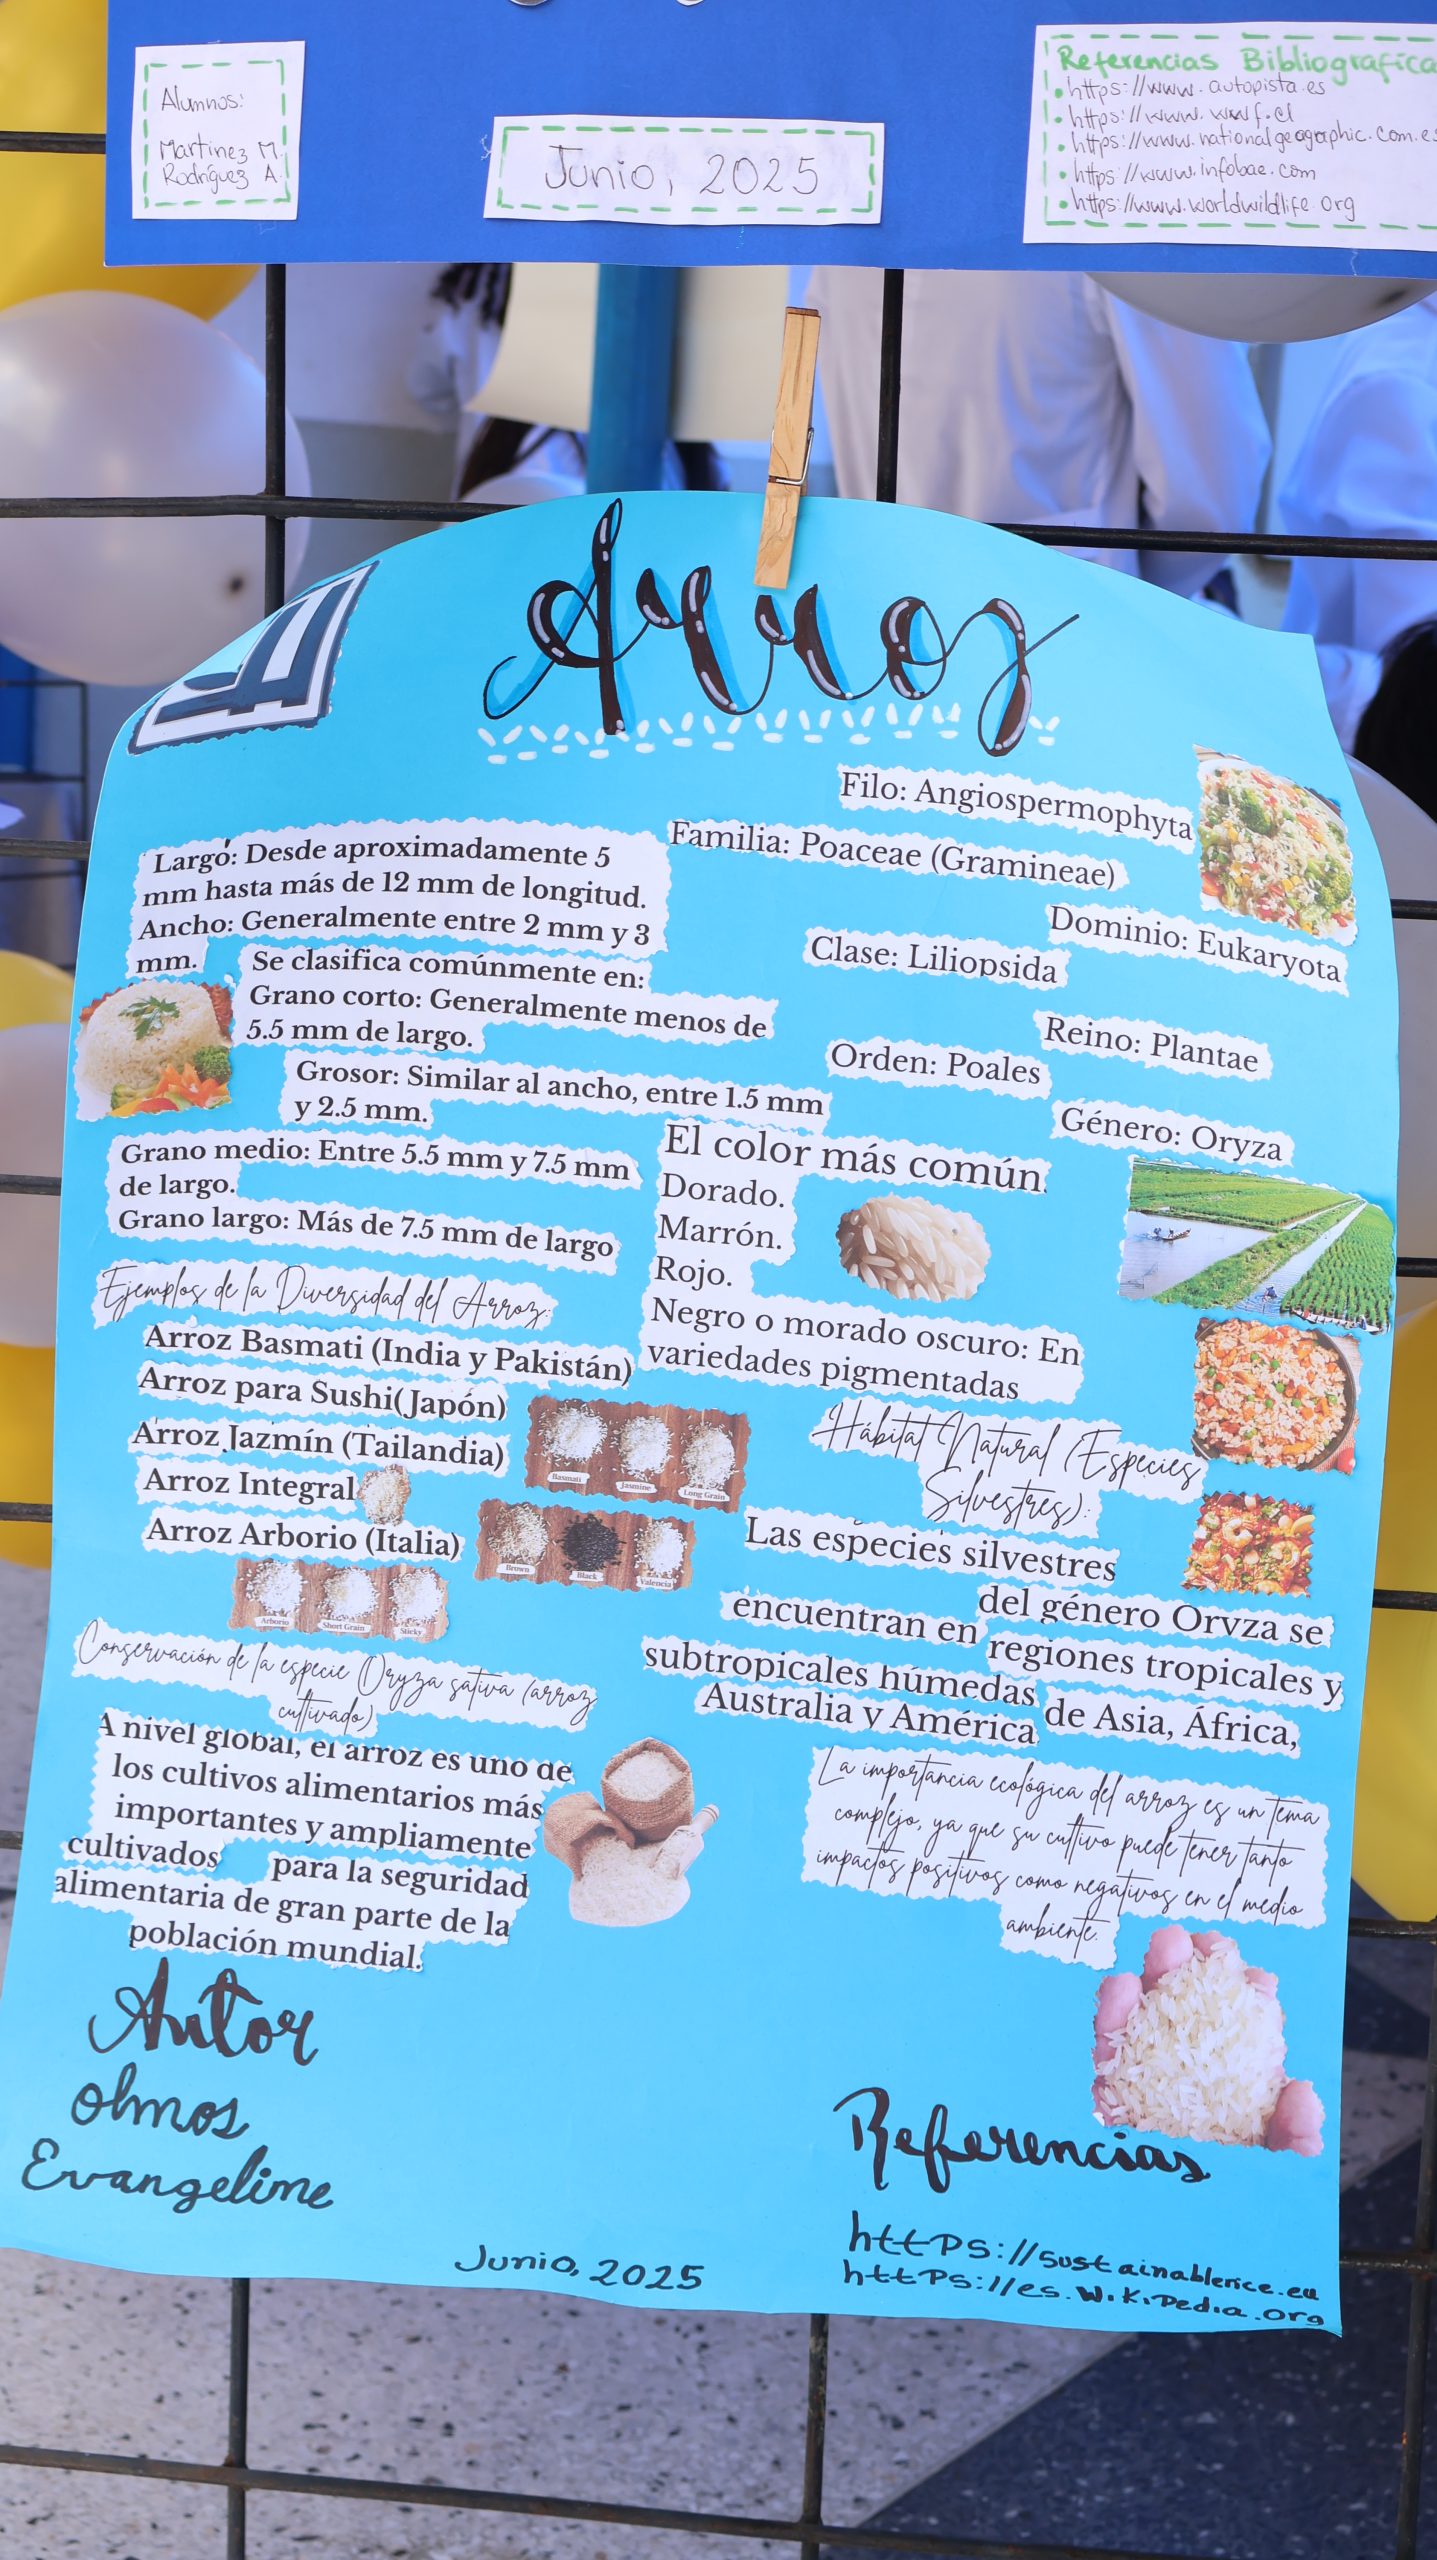 Alumnos:
Martinez M.
Rodríguez A.
Junio, 2025
Referencias Bibliografica
• https://www.autopista.es
• https://www.wwf.cl
• https://www.nationalgeographic.com.es
• https://www.infobae.com
• https://www.worldwildlife.org
Arroz
Filo: Angiospermophyta
Familia: Poaceae (Gramineae)
Dominio: Eukaryota
Clase: Liliopsida
Reino: Plantae
Orden: Poales
Género: Oryza
Largo: Desde aproximadamente 5
mm hasta más de 12 mm de longitud.
Ancho: Generalmente entre 2 mm y 3
mm.
Se clasifica comúnmente en:
Grano corto: Generalmente menos de
5.5 mm de largo.
Grosor: Similar al ancho, entre 1.5 mm
y 2.5 mm.
Grano medio: Entre 5.5 mm y 7.5 mm
de largo.
Grano largo: Más de 7.5 mm de largo
El color más común.
Dorado.
Marrón.
Rojo.
Negro o morado oscuro: En
variedades pigmentadas
Ejemplos de la Diversidad del Arroz:
Arroz Basmati (India y Pakistán)
Arroz para Sushi(Japón)
Arroz Jazmín (Tailandia)
Arroz Integral
Arroz Arborio (Italia)
Basmati
Jasmine
Long Grain
Brown
Black
Valencia
Arborio
Short Grain
Sticky
Hábitat Natural (Especies
Silvestres):
Las especies silvestres
del género Oryza se
encuentran en
regiones tropicales y
subtropicales húmedas
de Asia, África,
Australia y América
Conservación de la especie Oryza sativa (arroz
cultivado)
A nivel global, el arroz es uno de
los cultivos alimentarios más
importantes y ampliamente
cultivados para la seguridad
alimentaria de gran parte de la
población mundial.
La importancia ecológica del arroz es un tema
complejo, ya que su cultivo puede tener tanto
impactos positivos como negativos en el medio
ambiente.
Autor
Olmos
Evangeline
Junio, 2025
Referencias
https://sustainablerice.eu
https://es.wikipedia.org